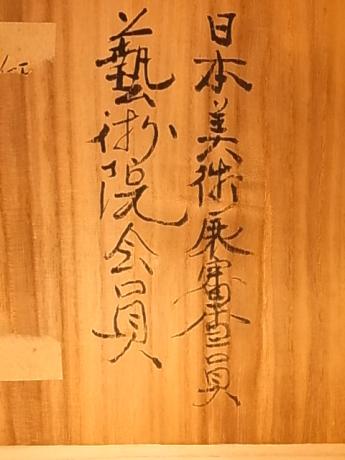 日本美術展審査員
藝術院会員